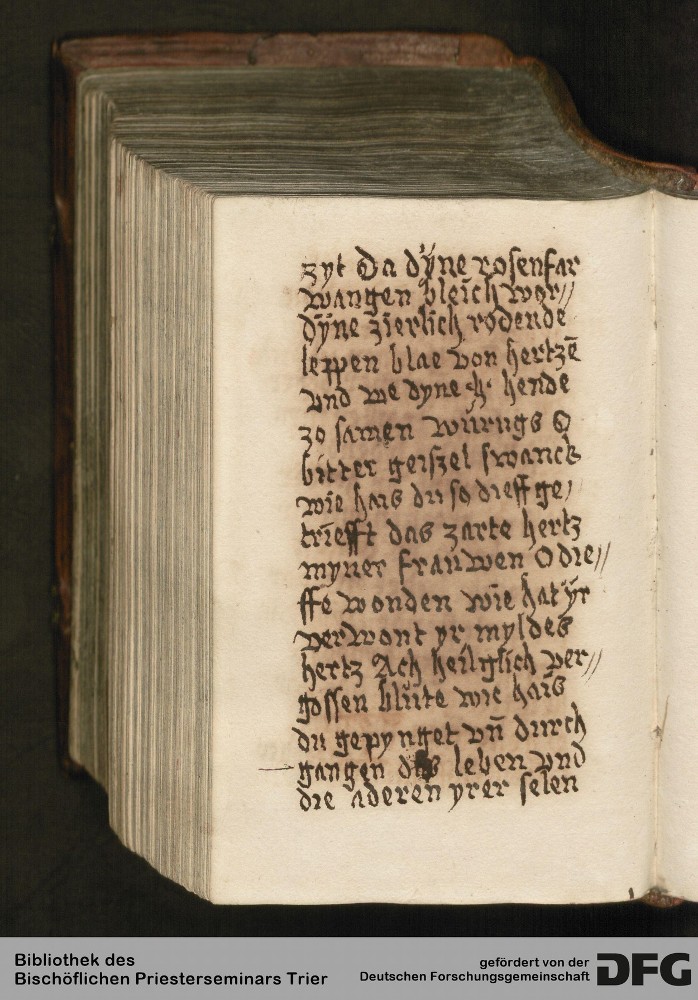 zyt Da dÿne rosenfar
wangen bleich wor//
dÿne zierlich rodende
leppen blae von hertzē
vnd we dyne ·h· hende
zo samen würugs O
bitter geiszel swanck
wie hais du so dieff ge/
triefft das zarte hertz
myner frauwen O die//
ffe wonden wie hat ÿr
verwont yr myldes
hertz Ach heiliglich ver//
gossen blüte wie hais
du gepynget vn̄ durch
gangen das leben vnd
die aderen yrer selen
Bibliothek des
Bischöflichen Priesterseminars Trier
gefördert von der
Deutschen Forschungsgemeinschaft
DFG